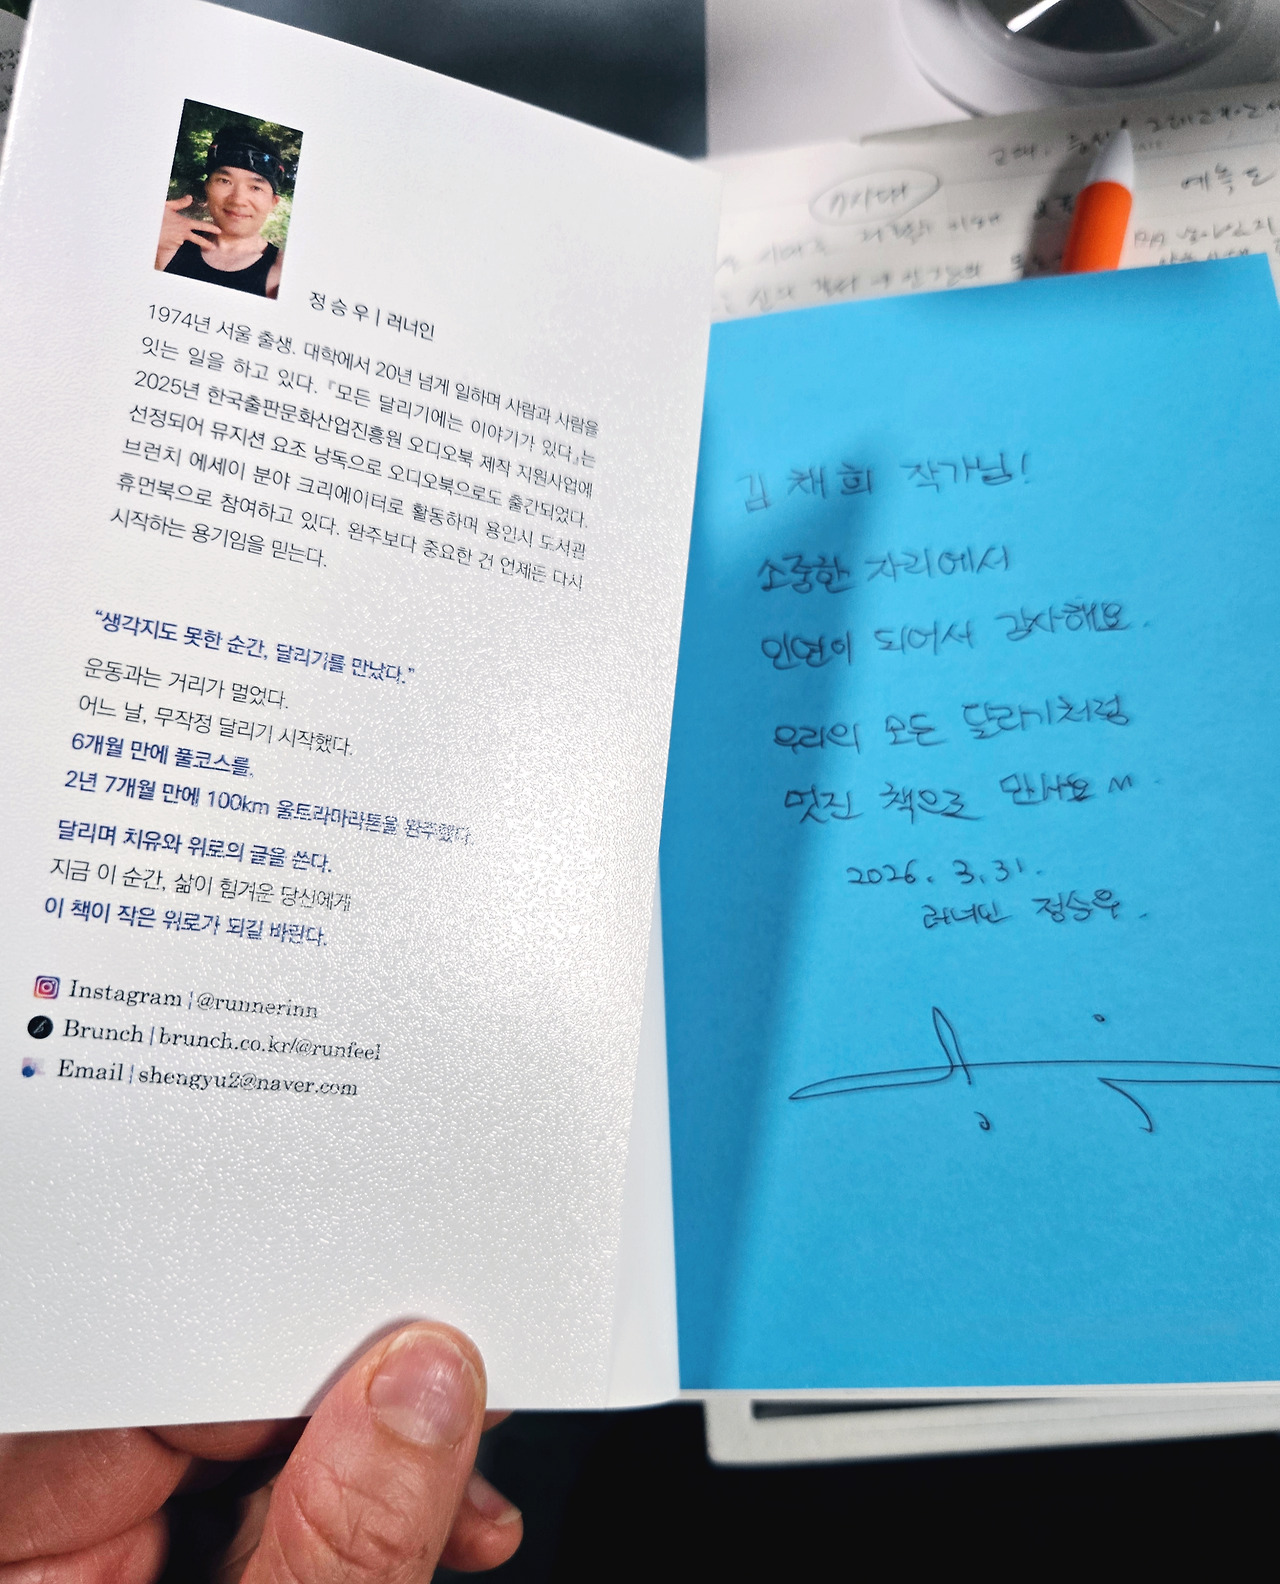 정승우 | 러너인
1974년 서울 출생. 대학에서 20년 넘게 일하며 사람과 사람을
잇는 일을 하고 있다. 『모든 달리기에는 이야기가 있다』는
2025년 한국출판문화산업진흥원 오디오북 제작 지원사업에
선정되어 뮤지션 요조 낭독으로 오디오북으로도 출간되었다.
브런치 에세이 분야 크리에이터로 활동하며 용인시 도서관
휴먼북으로 참여하고 있다. 완주보다 중요한 건 언제든 다시
시작하는 용기임을 믿는다.
“생각지도 못한 순간, 달리기를 만났다.”
운동과는 거리가 멀었다.
어느 날, 무작정 달리기 시작했다.
6개월 만에 풀코스를.
2년 7개월 만에 100km 울트라마라톤을 완주했다.
달리며 치유와 위로의 글을 쓴다.
지금 이 순간, 삶이 힘겨운 당신에게
이 책이 작은 위로가 되길 바란다.
Instagram | @runnerinn
Brunch | brunch.co.kr/@runfeel
Email | shengyu2@naver.com
김채희 작가님!
소중한 자리에서
인연이 되어서 감사해요.
우리의 모든 달리기처럼
멋진 책으로 만나요
2026. 3. 31.
러너인 정승우.